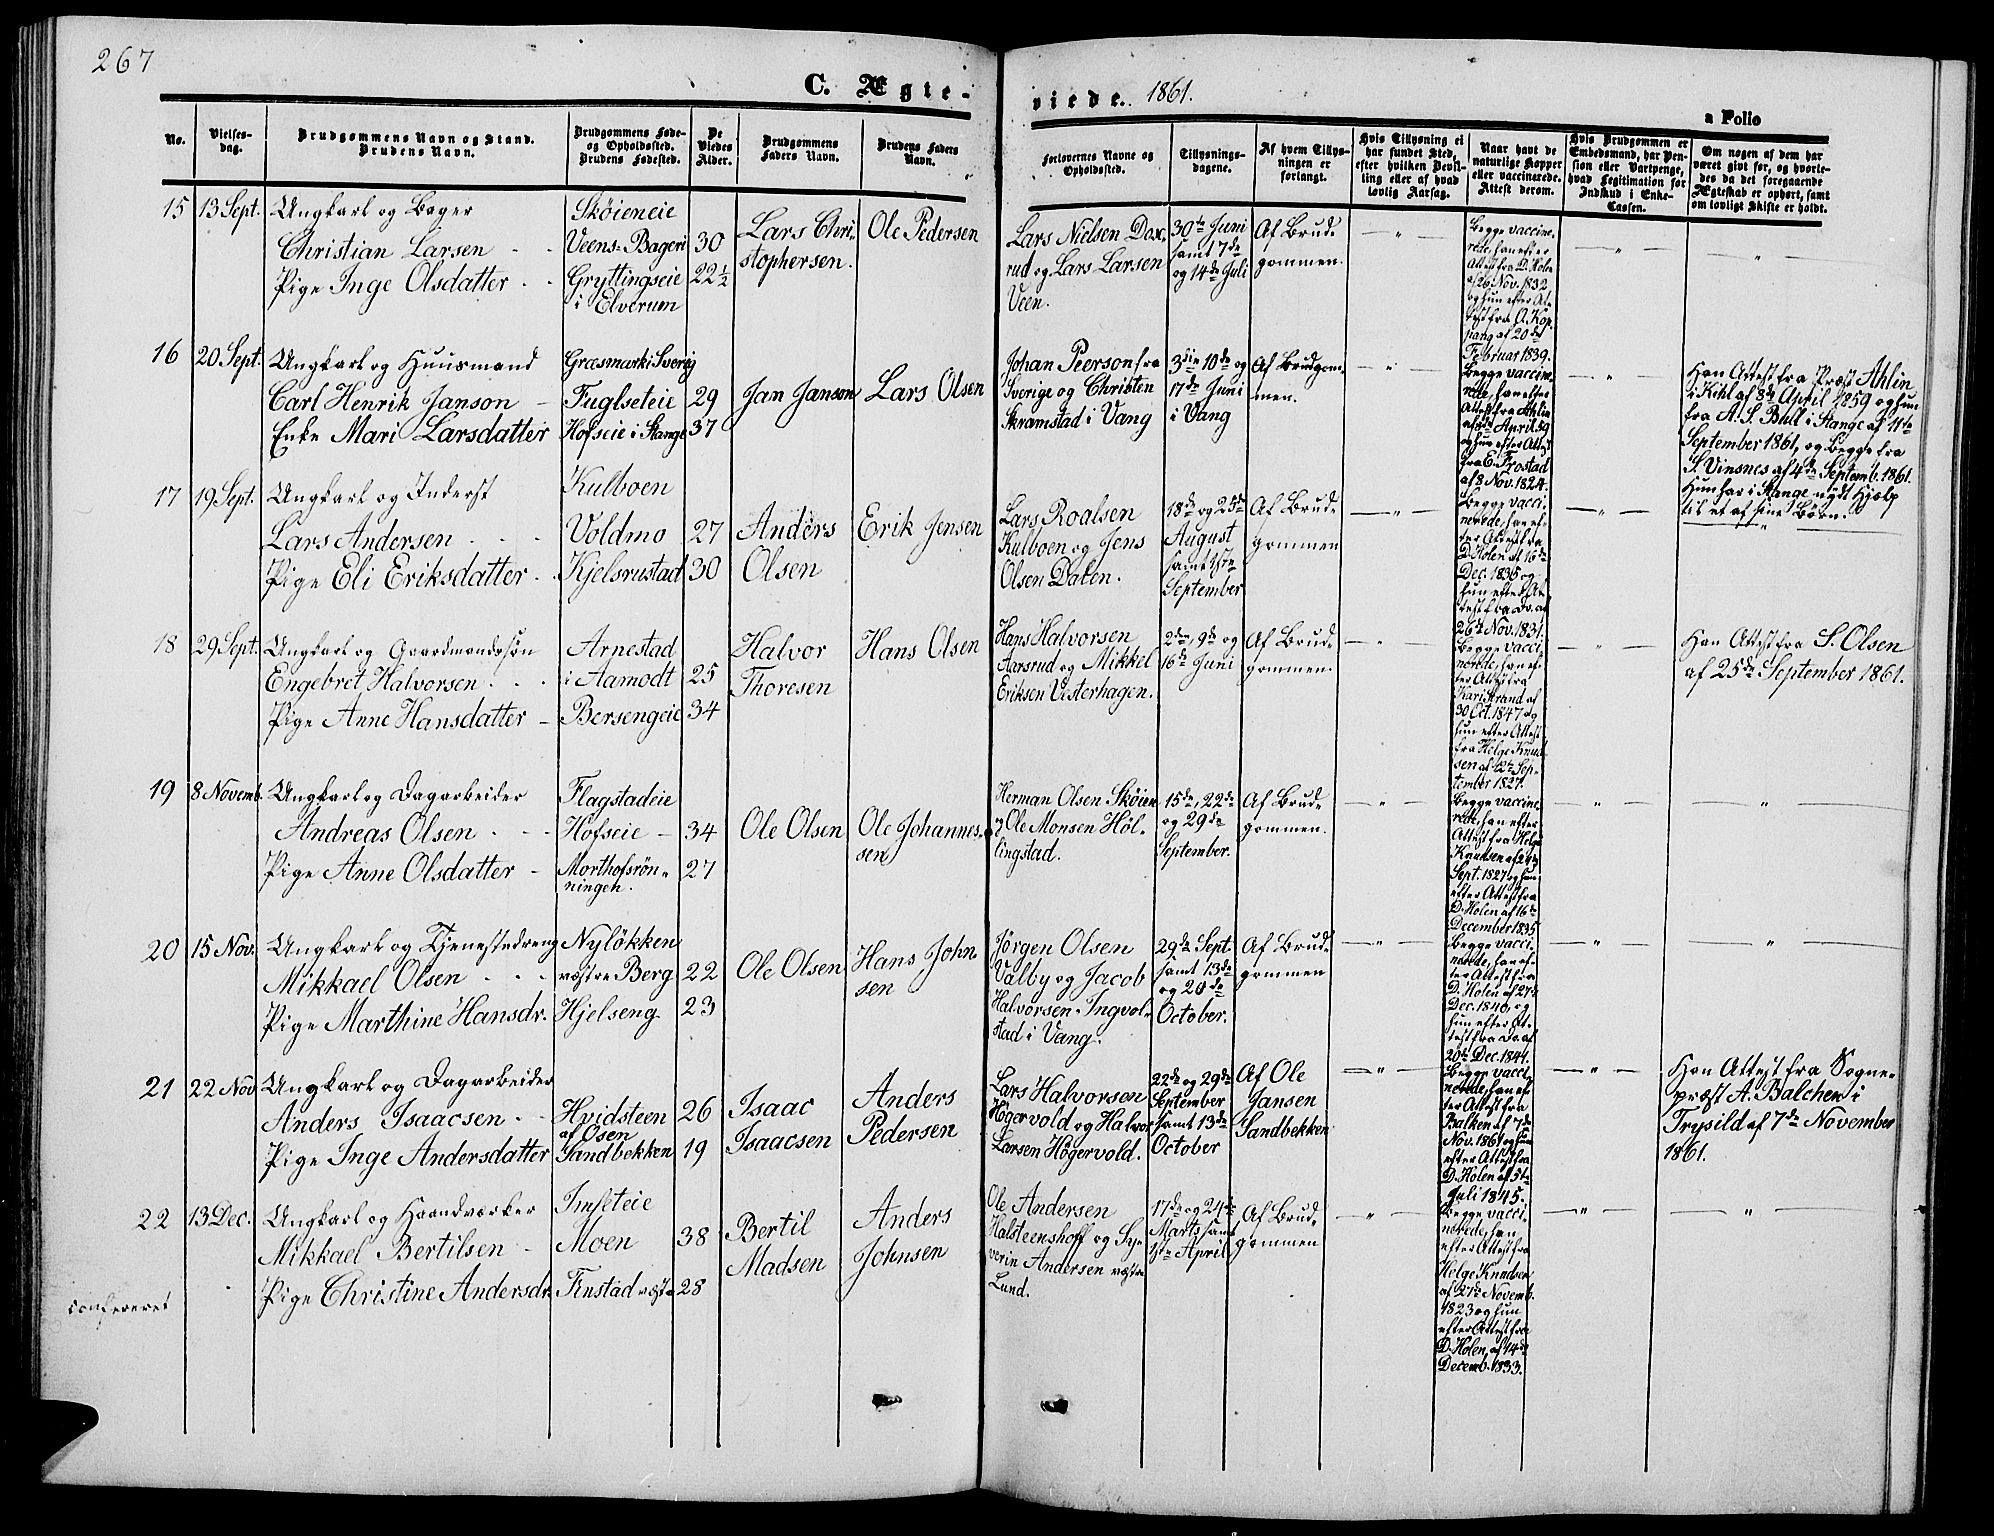 267
C. Ægte-
viede. 1861.
a Folio
No.
Vielses-
dag.
Brudgommens Navn og Stand.
Brudens Navn.
Brudgommens Føde-
og Opholdssted.
Brudens Fødested.
De
Viedes
Alder.
Brudgommens
Faders Navn.
Brudens Faders
Navn.
Forlovernes Navne og
Opholdssted.
Tillysnings-
dagene.
Af hvem Tillys-
ningen er
forlangt.
Hvis Tillysning ei
har fundet Sted,
efter hvilken Bevil-
ling eller af hvad
lovlig Aarsag.
Naar havt de
naturlige Kopper
eller vaccinerede.
Attest derom.
Hvis Brudgommen er
Embedsmand, har Pen-
sion eller Vartpenge,
hvad Legitimation for
Indskud i Enke-
Cassen.
Om nogen af dem har
været givt før, og hvorle-
des da det foregaaende
Ægteskab er ophørt, samt
om lovligt Skifte er holdt.
15 13 Sept. Ungkarl og Bager
Christian Larsen
Pige Inge Olsdatter
Skøieneie
Veens-Bageri 30
Gryttingseie 22½
i Elverum
Lars Chri-
stophersen.
Ole Pedersen
Lars Nielsen Dox-
rud og Lars Larsen
Veen.
30te Juni
samt 7de
og 14de Juli
Af Brud-
gommen.
Begge vaccine-
rede, han efter
Attest fra D. Holen
af 26 Nov. 1832
og hun efter At-
test fra A. Kop-
pang af 20de
Februar 1839.
16 20 Sept. Ungkarl og Huusmand
Carl Henrik Janson
Enke Mari Larsdatter
Græsmark i Sverig
Fuglseteie 29
Hofseie i Stange 37
Jan Janson
Lars Olsen
Johan Peerson fra
Sverige og Christen
Skramstad i Vang
3die 10de og
17de Juni
i Vang
Af Brudgom-
men.
Begge vaccine-
rede, han efter
Attest fra Ahlin
af 8de April 59
og hun efter Attest
fra E. Frostad
af 8 Nov. 1824.
Han Attest fra Præst Ahlin
i Kihl af 8de April 1859 og hun
fra A. S. Bull i Stange af 11te
September 1861, og Begge fra
S. Vinsnes af 4de Septemb. 1861.
Hun har i Stange nydt Hjælp
til et af sine Børn.
17 19 Sept. Ungkarl og Inderst
Lars Andersen
Pige Eli Eriksdatter
Kulboen
Voldmo 27
Kjelsrustad 30
Anders
Olsen
Erik Jensen
Lars Roalsen
Kulboen og Jens
Olsen Dalen.
18de og 25de
August
samt 1ste
September
Af Brud-
gommen
Begge vacci-
nerede, han ef-
ter Attest fra
D. Holen af 16de
Dec. 1835 og
hun efter At-
test fra Do. af
26de Nov. 1831.
18 29 Sept. Ungkarl og Gaardmandssøn
Engebret Halvorsen
Pige Anne Hansdatter
Arnestad
i Aamodt 25
Bersengeie 34
Halvor
Thoresen
Hans Olsen
Hans Halvorsen
Aarsrud og Mikkel
Eriksen Visterhagen.
2den, 9de og
16de Juni
Af Brud-
gommen.
Begge vacci-
nerede, han ef-
ter Attest fra
Karistrand af
30 Oct. 1847 og
hun efter Attest
fra Helge Knud-
sen af 12te Sep-
tember 1827.
Han Attest fra S. Olsen
af 25de September 1861.
19 8 Novemb. Ungkarl og Dagarbeider
Andreas Olsen
Pige Anne Olsdatter
Flagstadeie
Hofseie 34
Morthofsrøn-
ningen. 27
Ole Olsen
Ole Johannes-
sen
Herman Olsen Skøien
og Ole Monsen Höl-
lingstad.
15de, 22de
og 29de
September.
Af Brud-
gommen.
Begge vaccine-
rede, han efter
Attest fra Helge
Knudsen af 24de
Sept. 1827 og hun
efter Attest fra
D. Holen af 16de
December 1835
20 15 Nov. Ungkarl og Tjenestedreng
Mikkael Olsen
Pige Marthine Hansdr.
Nyløkken
væstre Berg 22
Hjelseng 23
Ole Olsen
Hans John-
sen
Jørgen Olsen
Valby og Jacob
Halvorsen Ingvol-
stad i Vang.
29de Sept.
samt 13de
og 20de
October.
Af Brud-
gommen
Begge vacci-
nerede, han ef-
ter Attest fra
D. Holen af 27de
Dec. 1840, og
hun efter At-
test fra Do af
20de Dec. 1841.
21 22 Nov. Ungkarl og Dagarbeider
Anders Isaacsen
Pige Inge Andersdatter
Hvidsteen 26
af Osen
Sandbekken 19
Isaac
Isaacsen
Anders
Pedersen
Lars Halvorsen
Högervold og Halvor
Larsen Högervold.
22de og 29de
September
samt 13de
October
Af Ole
Jansen
Sandbekken
Begge vacci-
nerede, han ef-
ter Attest fra
Balken af 7de
Nov. 1861 og hun
efter Attest fra
D. Holen af 5te
Juli 1845.
Han Attest fra Sogne-
præst A. Balchen i
Trysild af 7de November
1861.
22 13 Dec. Ungkarl og Haandværker
Mikkael Bertilsen
Pige Christine Andersdr.
Imseteie
Moen 38
Finstad væst. 28
Bertil
Madsen
Anders
Johnsen
Ole Andersen
Halsteenshoff og Sy-
verin Andersen væstre
Lund.
17de og 24de
Marts samt
1ste April
Af Brud-
gommen
Begge vacci-
nerede, han
efter Attest fra
Helge Knudsen
af 27de Novemb.
1823 og hun
efter Attest fra
D. Holen, af 14de
Decemb. 1833.
confereret